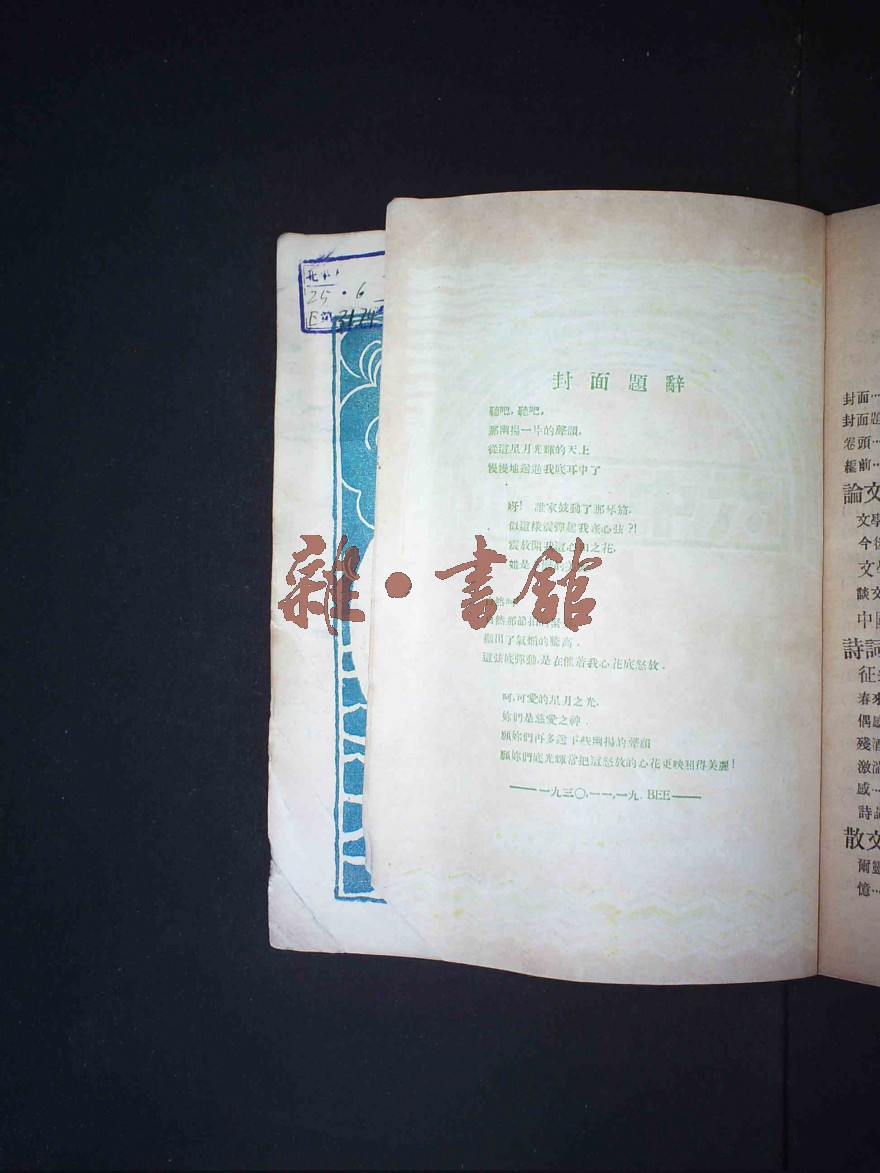 封面題辭
聽吧，聽吧，
那幽揚一片的聲韻，
從這星月光輝的天上
慢慢地送進我底耳中了
呀！誰家鼓動了那琴簫，
似這樣震彈起我底心弦?!
震放開我這心田之花，
她是
然
然那節拍
顯出了氣燄的騰高，
這弦底彈動，是在催着我心花底怒放。
呵，可愛的星月之光，
妳們是慈愛之神，
願妳們再多送下些幽揚的聲韻
願妳們底光輝常把這怒放的心花更映照得美麗！
——一九三〇，一一，一九，BEE——
雜·書館
25.6
E
封面…
封面題
卷頭…
編前…
論文
文學
今後
文學
談文
中國
詩詞
征
春來
偶感
殘酒
激湍
感…
詩
散文
爾
憶…